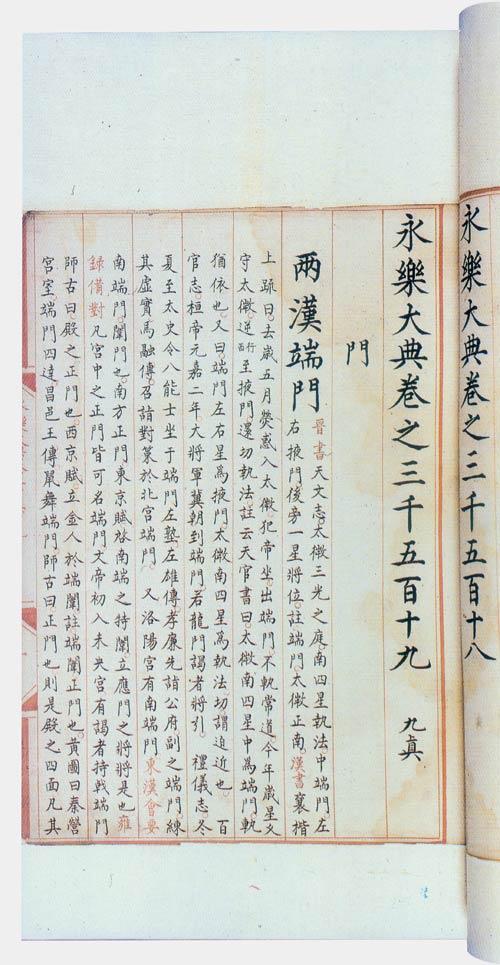 永樂大典卷之三千五百十八
永樂大典卷之三千五百十九 九真
門
兩漢端門
晉書天文志太微三光之庭南四星執法中端門左
右掖門後旁一星將位註端門太微正南漢書襄揩
上疏曰去歲五月熒惑入太微犯帝坐出端門不軌常道今年歲星久
守太微逆行西至掖門還切執法註云天官書曰太微南四星中為端門軌
猶依也又曰端門左右星為掖門太微南四星為執法切謂迫近也 百
官志桓帝元嘉二年大將軍冀朝到端門若龍門謁者將引 禮儀志冬
夏至太史令八能士坐于端門左塾左雄傳孝廉先詣公府副之端門練
其虛實馬融傳召詣對策於北宮端門 又洛陽宮有南端門東漢會要
南端門闈門也南方正門東京賦啟南端之特闈立應門之將將是也雍
錄備對凡宮中之正門皆可名端門文帝初入未央宮有謁者持戟端門
師古曰殿之正門也西京賦立金人於端闈註端闈正門也黃圖曰秦營
宮室端門四達昌邑王傳鼠舞端門師古曰正門也則是殿之四面凡其